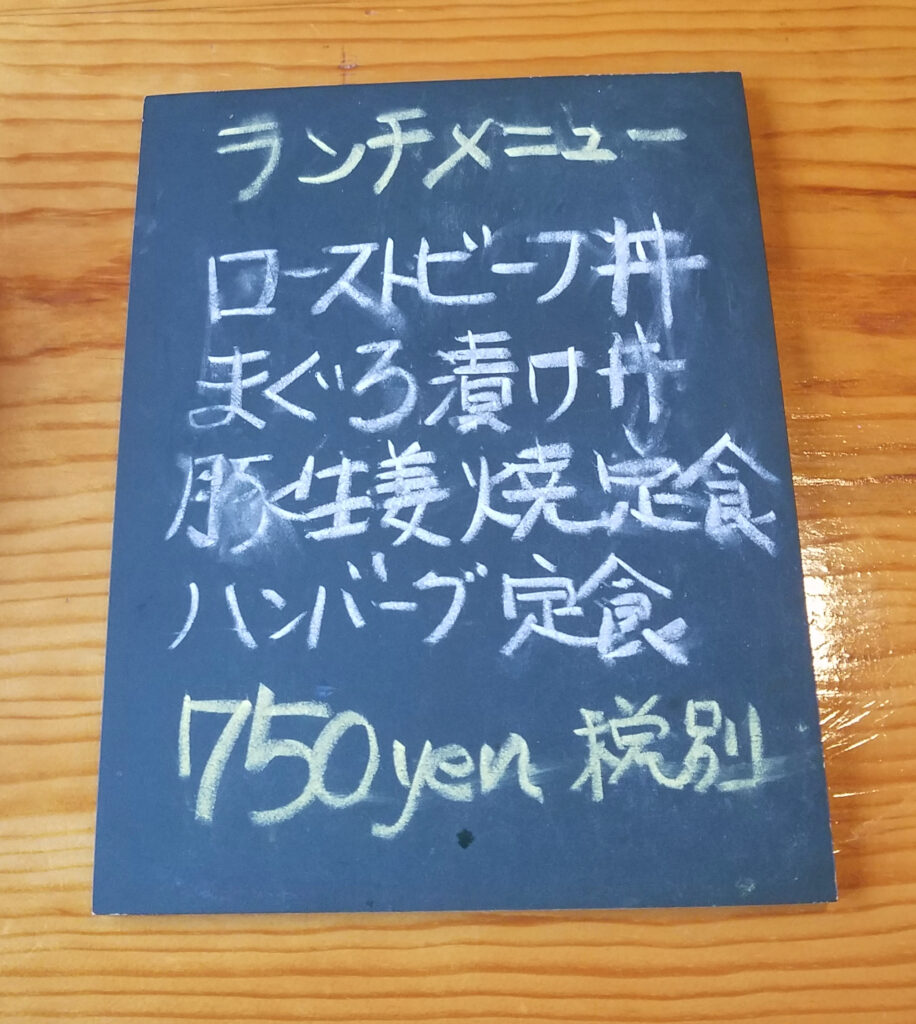 ランチメニュー
ローストビーフ丼
まぐろ漬け丼
豚生姜焼定食
ハンバーグ定食
750yen 税別